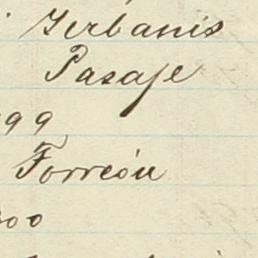 Gerbanis
Pasaje
99
Torreón
00